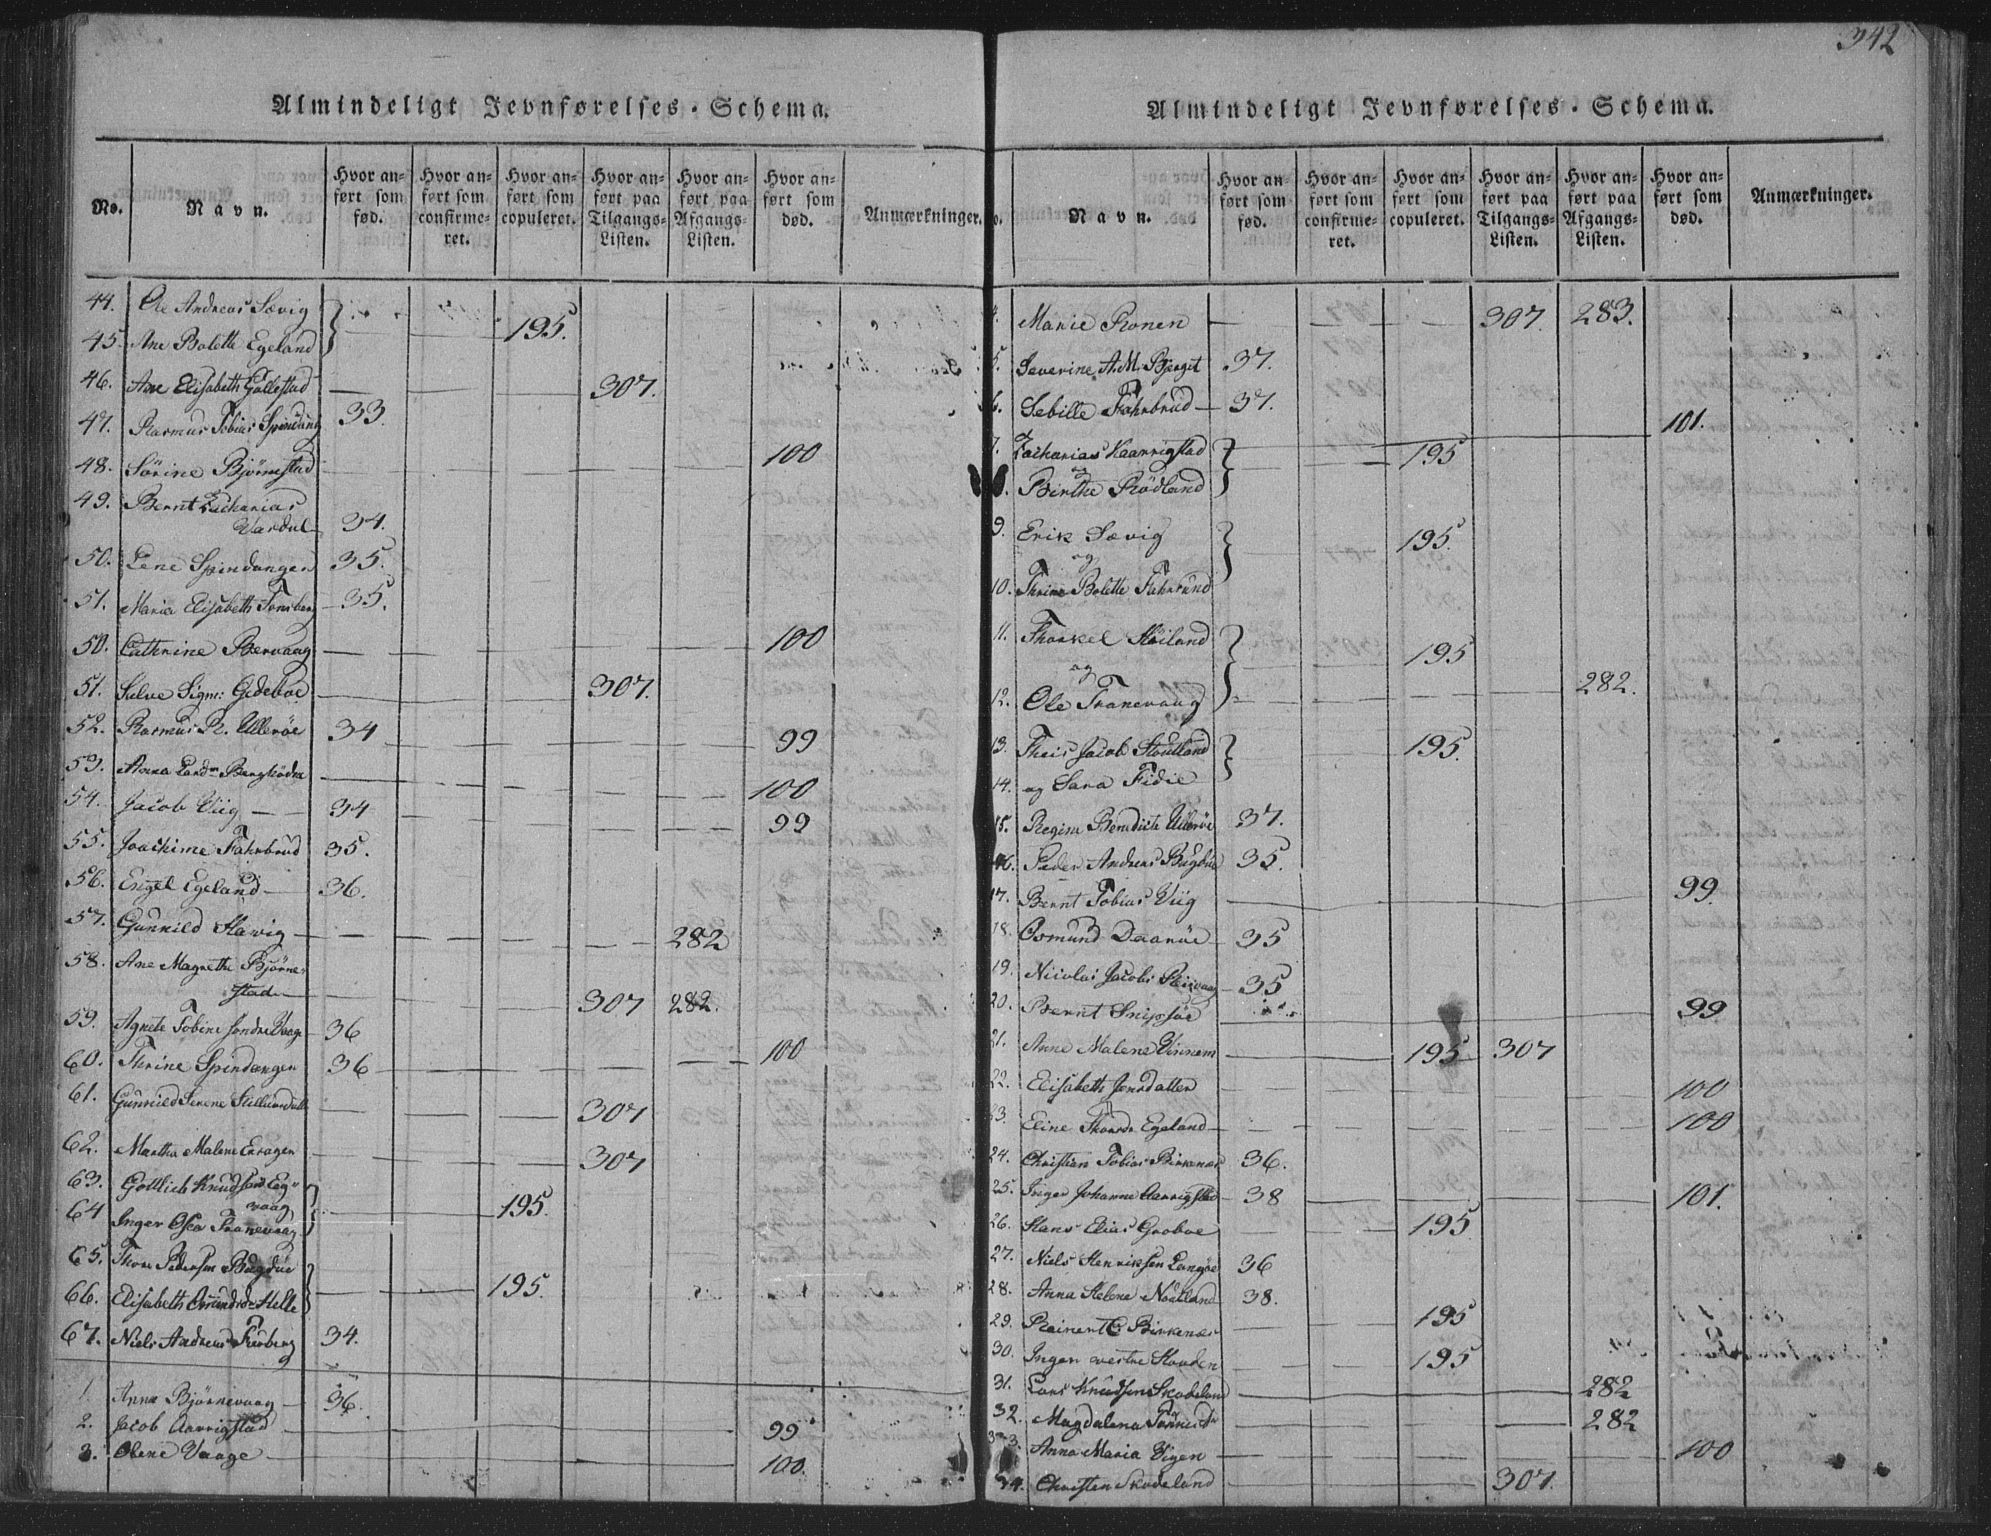 342
Almindeligt Jevnførelses-Schema.
No. Navn. Hvor anført som fød. Hvor anført som confirmeret. Hvor anført som copuleret. Hvor anført paa Tilgangs-Listen. Hvor anført paa Afgangs-Listen. Hvor anført som død. Anmærkninger.
44. Ole Andreas Sævig
195.
45. Ane Bolette Egeland
46. Ane Elisabeth Gollestad 307.
47. Rasmus Tobias Spindung 33.
48. Sörine Björnestad 100
49. Bernt Zacharias
Vardal 34.
50. Lene Spindangen 35.
51. Maria Elisabeth Tonsberg 35.
50. Cathrine Bervaag 100
51. Salve Sigm: Gedeboe 307.
52. Rasmus R. Ulleröe 34 99
53. Anna 100
54. Jacob Viig 34 99
55. Joachime Fahrbrud 35.
56. Engel Egeland 36.
57. Gunnild Hawig 282
58. Ane Magrethe Björne-
stad 307 282.
59. Agnete Tobine söndre Vaage 36
60. Thrine Spindangen 36 100
61. Gunnild Serene 307
62. Martha Malene 307
63. Gottlieb Knudsen Eg-
vaag
195.
64 Inger Osea Tranevaag
65. Thore Pedersen Bugdöe
66. Elisabeth Helle 195.
67. Niels Andreas 34.
1. Anna Björnevaag 36.
2. Jacob Aarrigstad 99
3. Olene Vaage 100.
Almindeligt Jevnførelses-Schema.
No. Navn. Hvor anført som fød. Hvor anført som confirmeret. Hvor anført som copuleret. Hvor anført paa Tilgangs-Listen. Hvor anført paa Afgangs-Listen. Hvor anført som død. Anmærkninger.
4. Marie Ronen 307. 283.
5. Severine A. M. Bjerget 37.
6. Sebille Fahrbrud 37. 101.
7. Zacharias Kaarrigstad 195
og
8. Birthe Rödland
9. Erik Sævig 195.
og
10. Thrine Bolette Fahrbrund
11. Thorkel Höiland 195
og
12. Ole Tranevaag 282.
13. Theis Jacob Stoutland 195.
14. og Sara Fidie
15. Regine Benedicte Ulleröe 37.
16. Peder Andreas Bugdöe 35.
17. Bernt Tobias Viig 99.
18. Osmund Daaröe 35
19. Nicolai Jacobs Reievaag 35
20. Bernt Snigsöe 99
21. Anne Malene Vinnem 195 307
22. Elisabeth Jensdatter 100
23. Eline Egeland 100
24. Christian Tobias Birkenæs 36.
25. Inger Johanne Aarrigstad 38 101.
26. Hans Elias Groboe 195
27. Niels Henriksen Langöe 36
28. Anna Helene Nötland 38.
29. Reinert C Birkenæs 195
30. Inger vestre Houden 195
31. Lars Knudsen Skodeland 282
32. Magdalena 282
33. Anna Maria Vigen 100
34. Christen Skodeland 307.